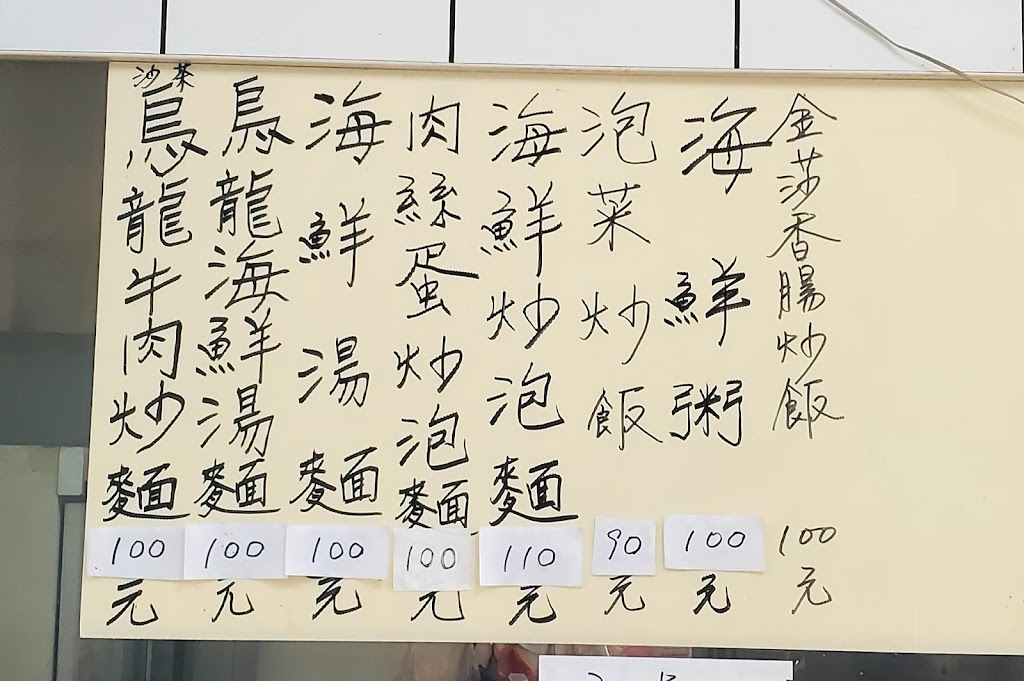 金莎香腸炒飯100元
海鮮粥100元
泡菜炒飯90元
海鮮炒泡麵110元
肉絲蛋炒泡麵100元
海鮮湯麵100元
烏龍海鮮湯麵100元
沙茶
烏龍牛肉炒麵100元